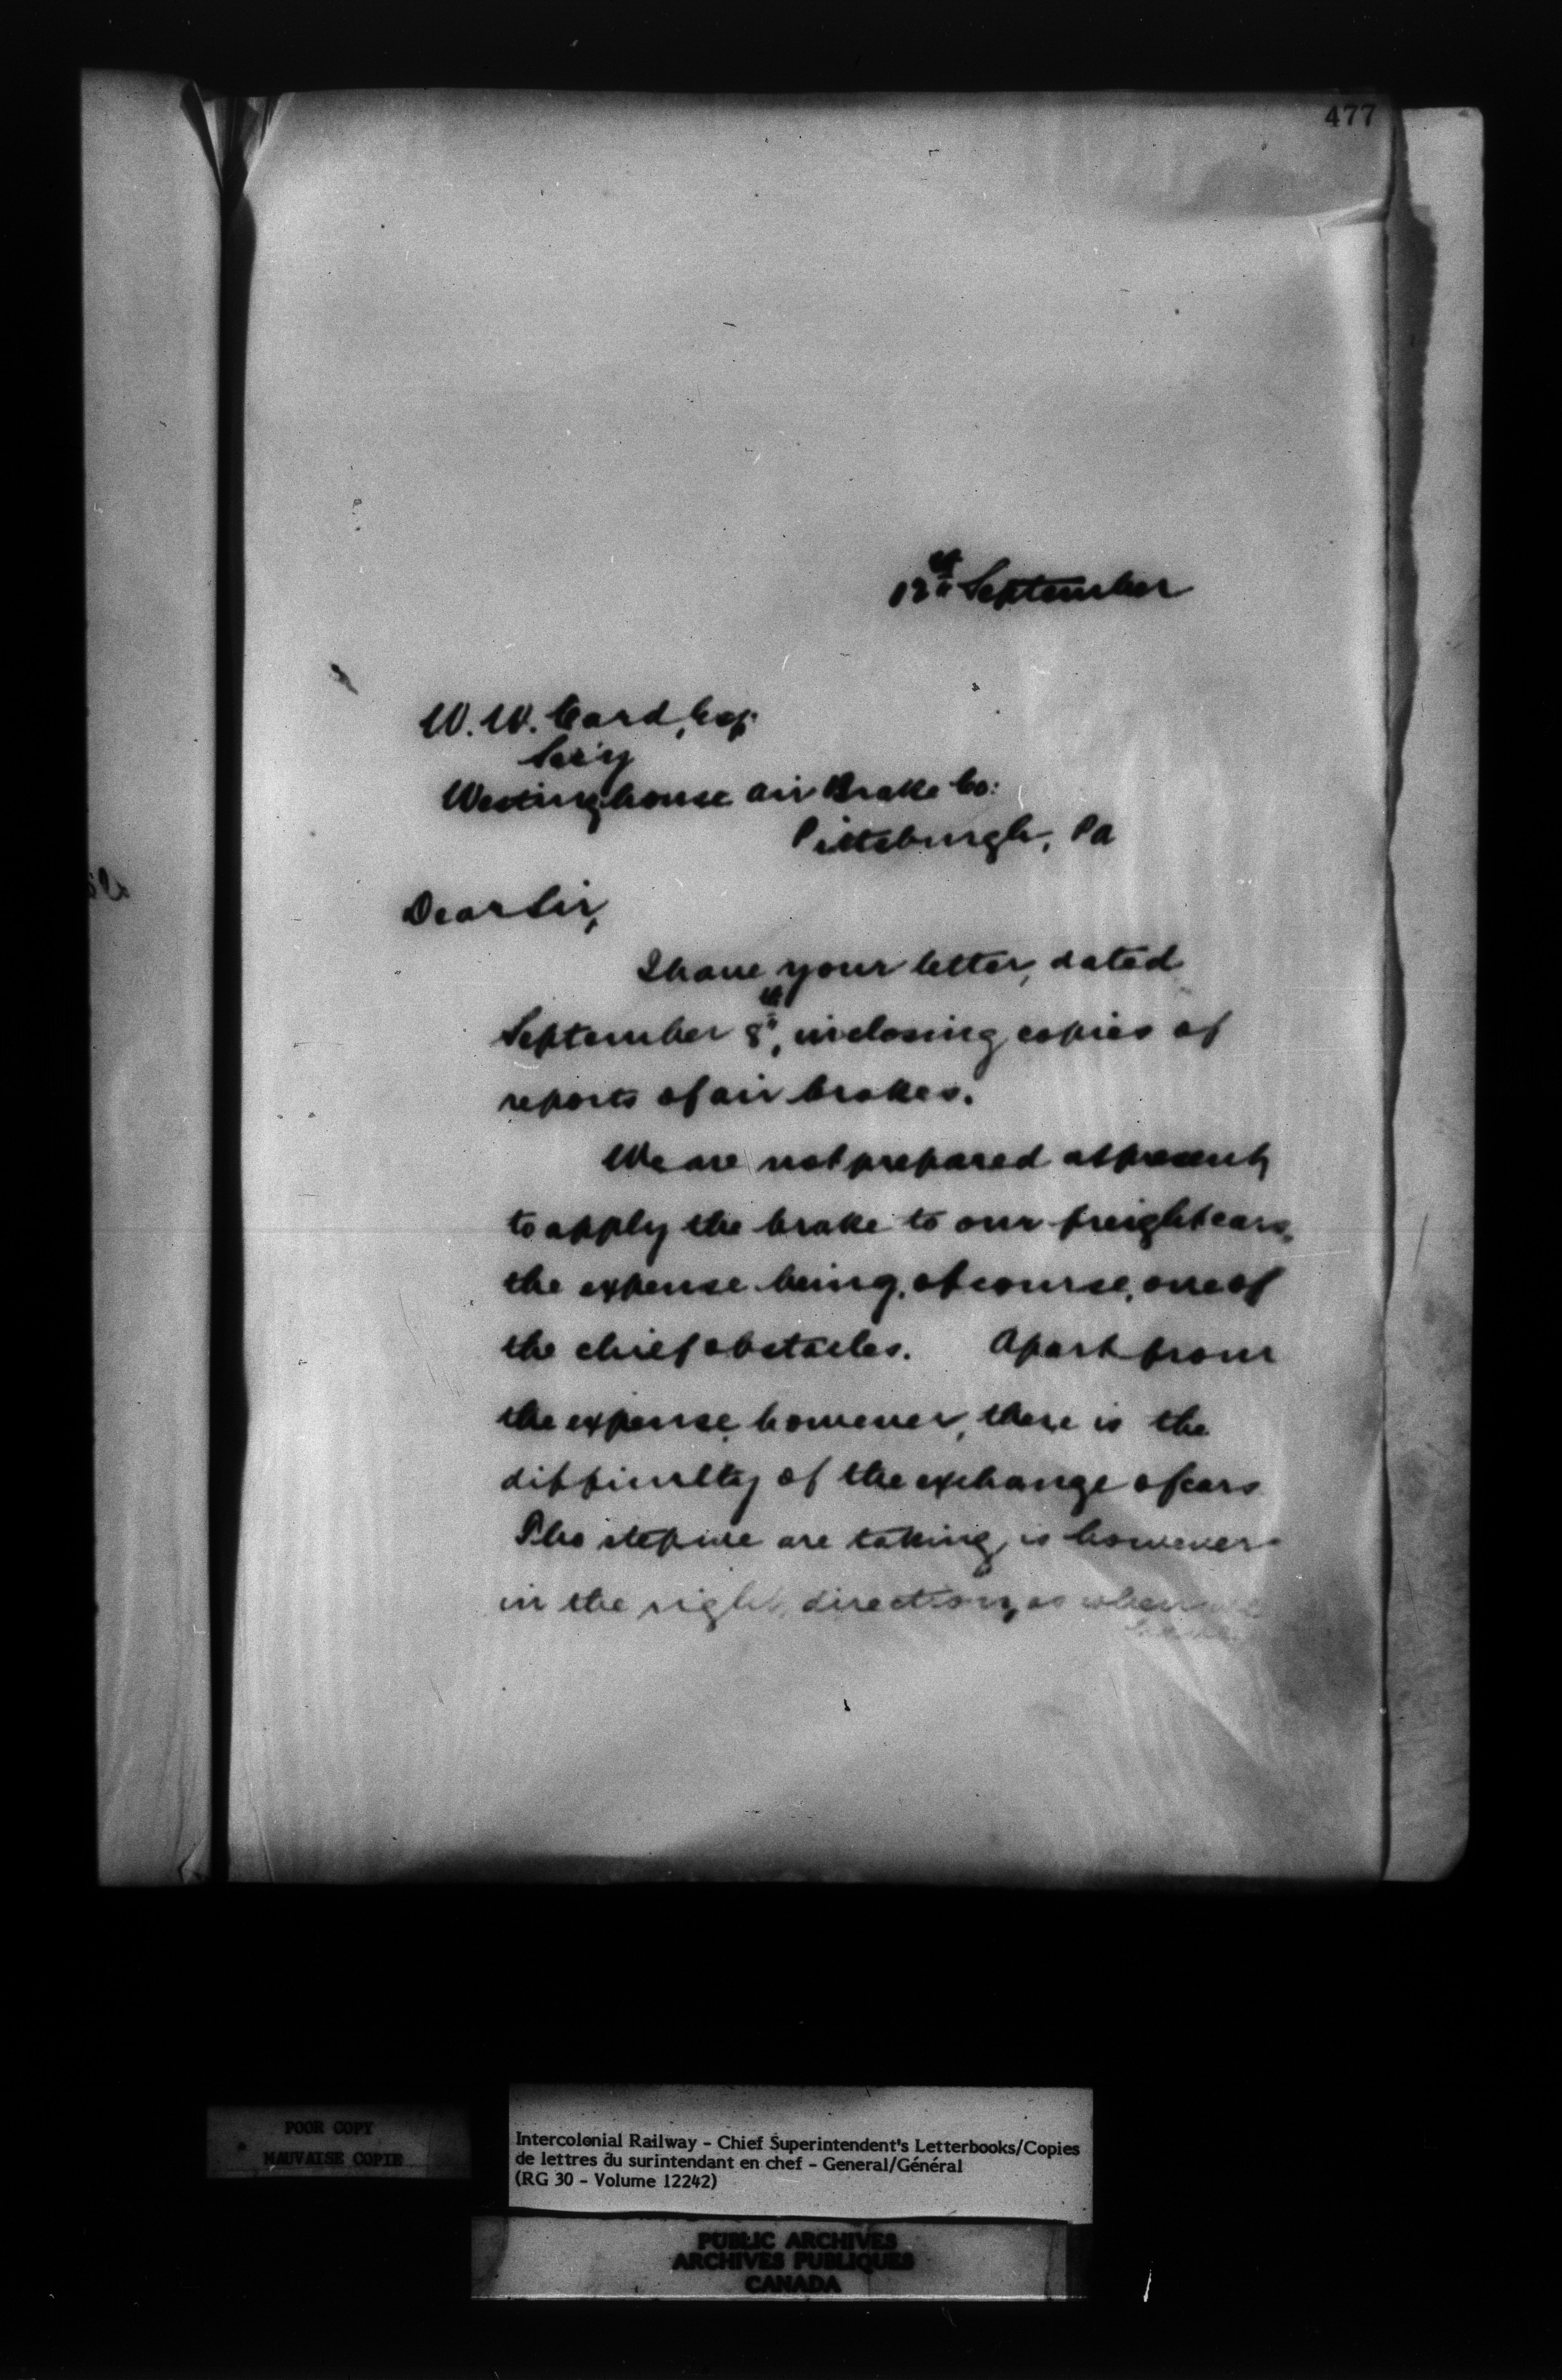 477
12th September
W. W. Card, Esq.
Sec'y
Westinghouse Air Brake Co:
Pittsburgh, Pa
Dear Sir,
I have your letter, dated
September 8th, inclosing copies of
reports of air brakes.
We are not prepared at present,
to apply the brake to our freight cars,
the expense being, of course, one of
the chief obstacles. Apart from
the expense, however, there is the
difficulty of the exchange of cars
The step we are taking, is however
in the right direction, as when we
POOR COPY
MAUVAISE COPIE
Intercolonial Railway - Chief Superintendent's Letterbooks/Copies
de lettres du surintendant en chef - General/Général
(RG 30 - Volume 12242)
PUBLIC ARCHIVES
ARCHIVES PUBLIQUES
CANADA